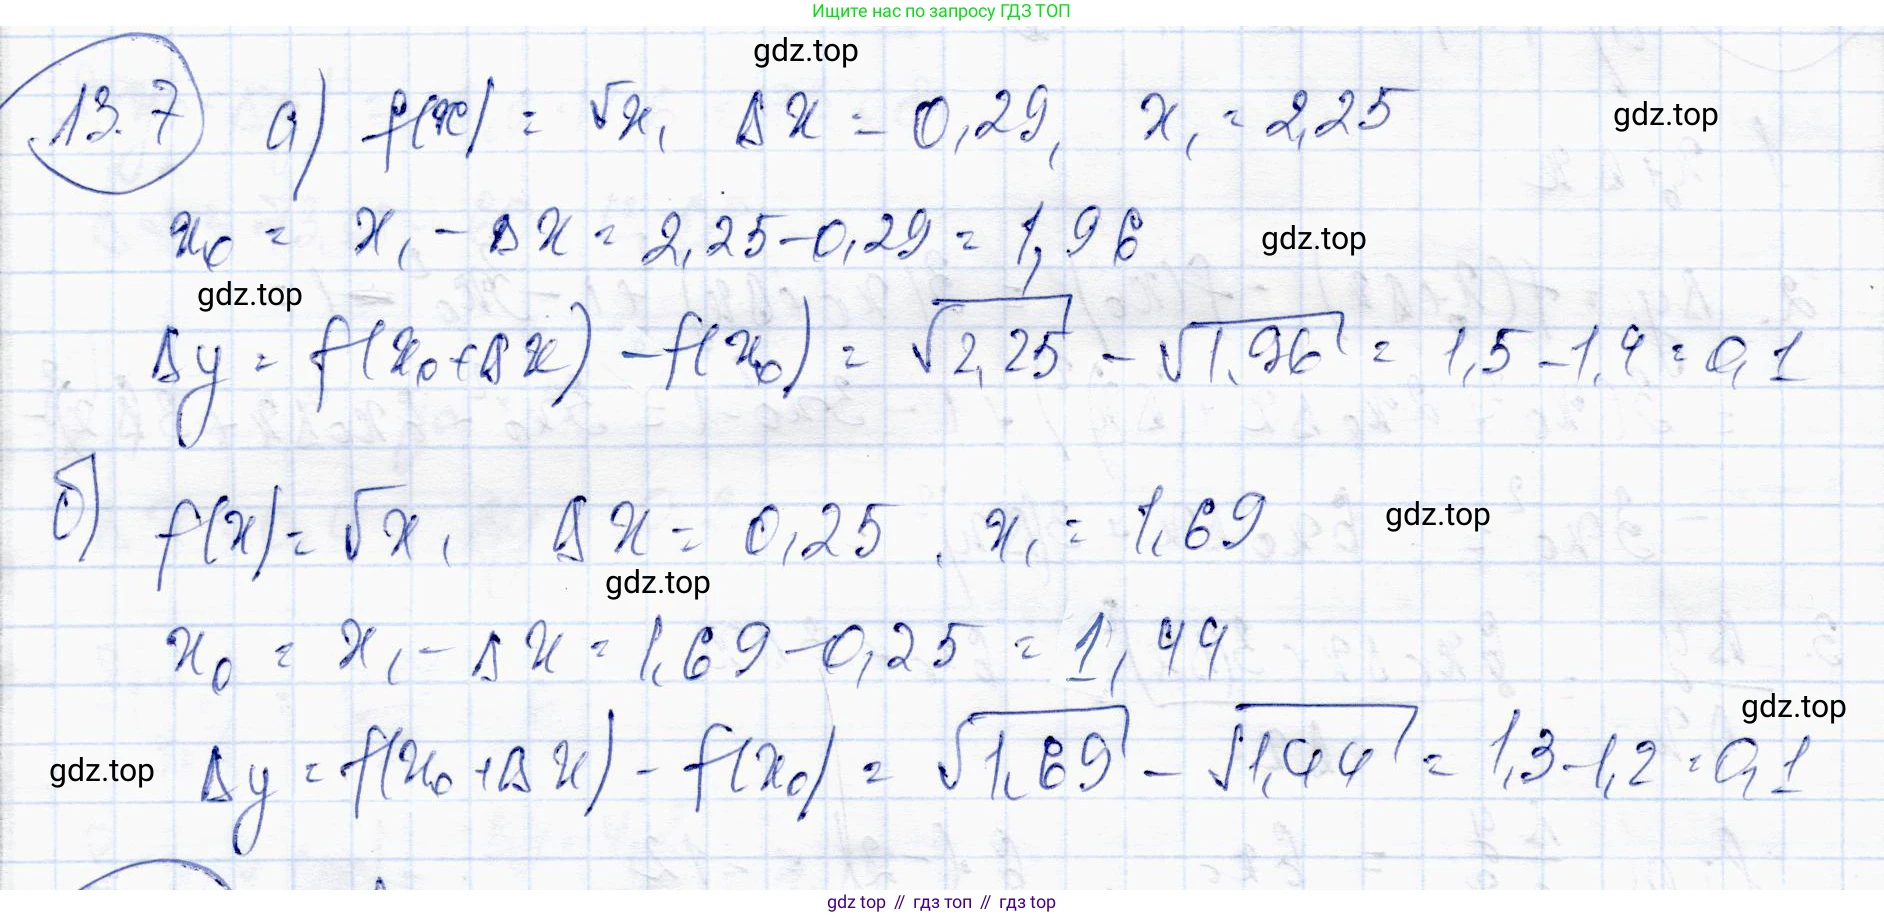 Ищите нас по запросу ГДЗ ТОП
gdz.top
13.7 а) f(x) = √x, Δx = 0,29, x₁ = 2,25
gdz.top
x₀ = x₁ - Δx = 2,25 - 0,29 = 1,96
gdz.top
gdz.top
Δy = f(x₀+Δx) - f(x₀) = √2,25 - √1,96 = 1,5 - 1,4 = 0,1
б) f(x) = √x, Δx = 0,25, x₁ = 1,69
gdz.top
gdz.top
x₀ = x₁ - Δx = 1,69 - 0,25 = 1,44
gdz.top
gdz.top
Δy = f(x₀+Δx) - f(x₀) = √1,69 - √1,44 = 1,3 - 1,2 = 0,1
gdz top // гдз топ // гдз top